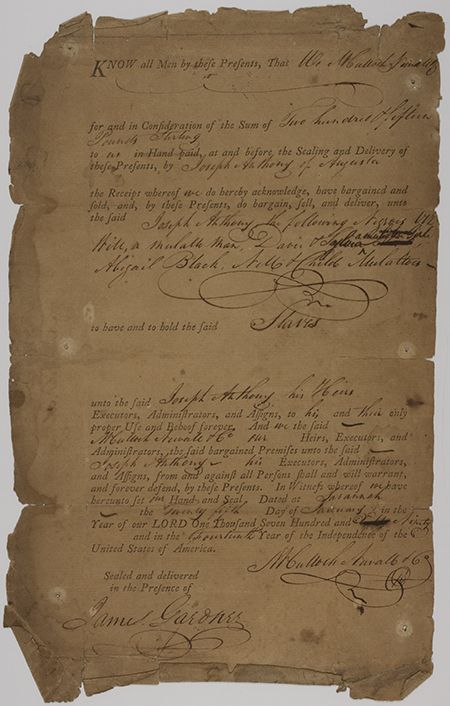 KNOW all Men by these Presents, That We McCulloch
for and in Consideration of the Sum of Two hundred & fifteen
Pounds Sterling
to us in Hand paid, at and before the Sealing and Delivery of
these Presents, by Joseph Anthony of Augusta
the Receipt whereof we do hereby acknowledge, have bargained and
sold, and, by these Presents, do bargain, sell, and deliver, unto
the said Joseph Anthony the following Negroes Viz
Will, a mulatto Man, Davie &
Abigail Black, Nell & Child Mulattoes
to have and to hold the said Slaves
unto the said Joseph Anthony his Heirs
Executors, Administrators, and Assigns, to his and their only
proper Use and Behoof forever. And we the said
McCulloch Newall & Co our Heirs, Executors, and
Administrators, the said bargained Premises unto the said
Joseph Anthony his Executors, Administrators,
and Assigns, from and against all Persons shall and will warrant,
and forever defend, by these Presents. In Witness whereof we have
hereunto set our Hand and Seal, Dated at Savannah
the twenty fifth Day of January in the
Year of our LORD One Thousand Seven Hundred and Ninety
and in the fourteenth Year of the Independence of the
United States of America.
McCulloch Newall & Co
Sealed and delivered
in the Presence of
James Gardner